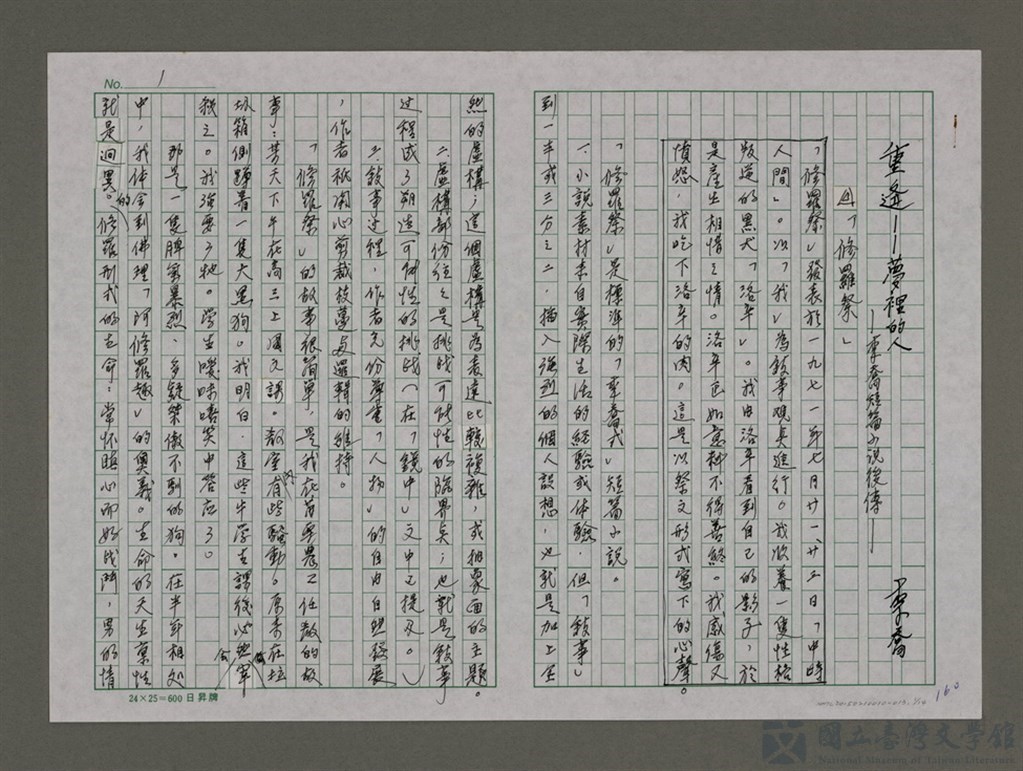 重逢——夢裡的人
——李喬短篇小說後傳——
李喬
回「修羅祭」
「修羅祭」發表於一九七一年七月廿一、廿二日「中時
人間」。以「我」為敘事觀點進行。我收養一隻性格
叛逆的黑犬「洛辛」。我由洛辛看到自己的影子,於
是產生相惜之情。洛辛已如意料不得善終。我感傷又
憤怒,我吃下洛辛的肉。這是以祭文形式寫下的心聲。
「修羅祭」是標準的「李喬式」短篇小說。
一、小說素材來自實際生活的經驗或体驗,但「敍事」
到一半或三分之二,插入強烈的個人設想,也就是加上全
然的虛構;這個虛構是為表達比較複雜,或抽象面的主題。
二、虛構部份往往是挑战可能性的臨界点;也就是敍事
过程成了朔造可能性的挑战(在「鏡中」文中已提及。)
三、敍事过程,作者充份尊重「人物」的自由自然發展
,作者祇用心剪裁枝蔓与邏輯的維持。
「修羅祭」的故事很簡單,是我在苗栗農工任教的故
事:某天下午在高三上國文課。教室內有些騷動。原來在垃
圾箱側蹲着一隻大黑狗。我明白,這些牛學生課後必然會宰
殺之。我強要了牠。學生曖昧嘻笑中答应了。
那是一隻脾氣暴烈、多疑桀傲不馴的狗。在半年相处
中,我体会到佛理「阿修羅趣」的奧義。生命的天生稟性
就是迥異的。修羅刑式的生命:常怀瞋心而好战鬥,男的情
No. 1
24×25=600 日昇牌
160
國立臺灣文學館
National Museum of Taiwan Literature